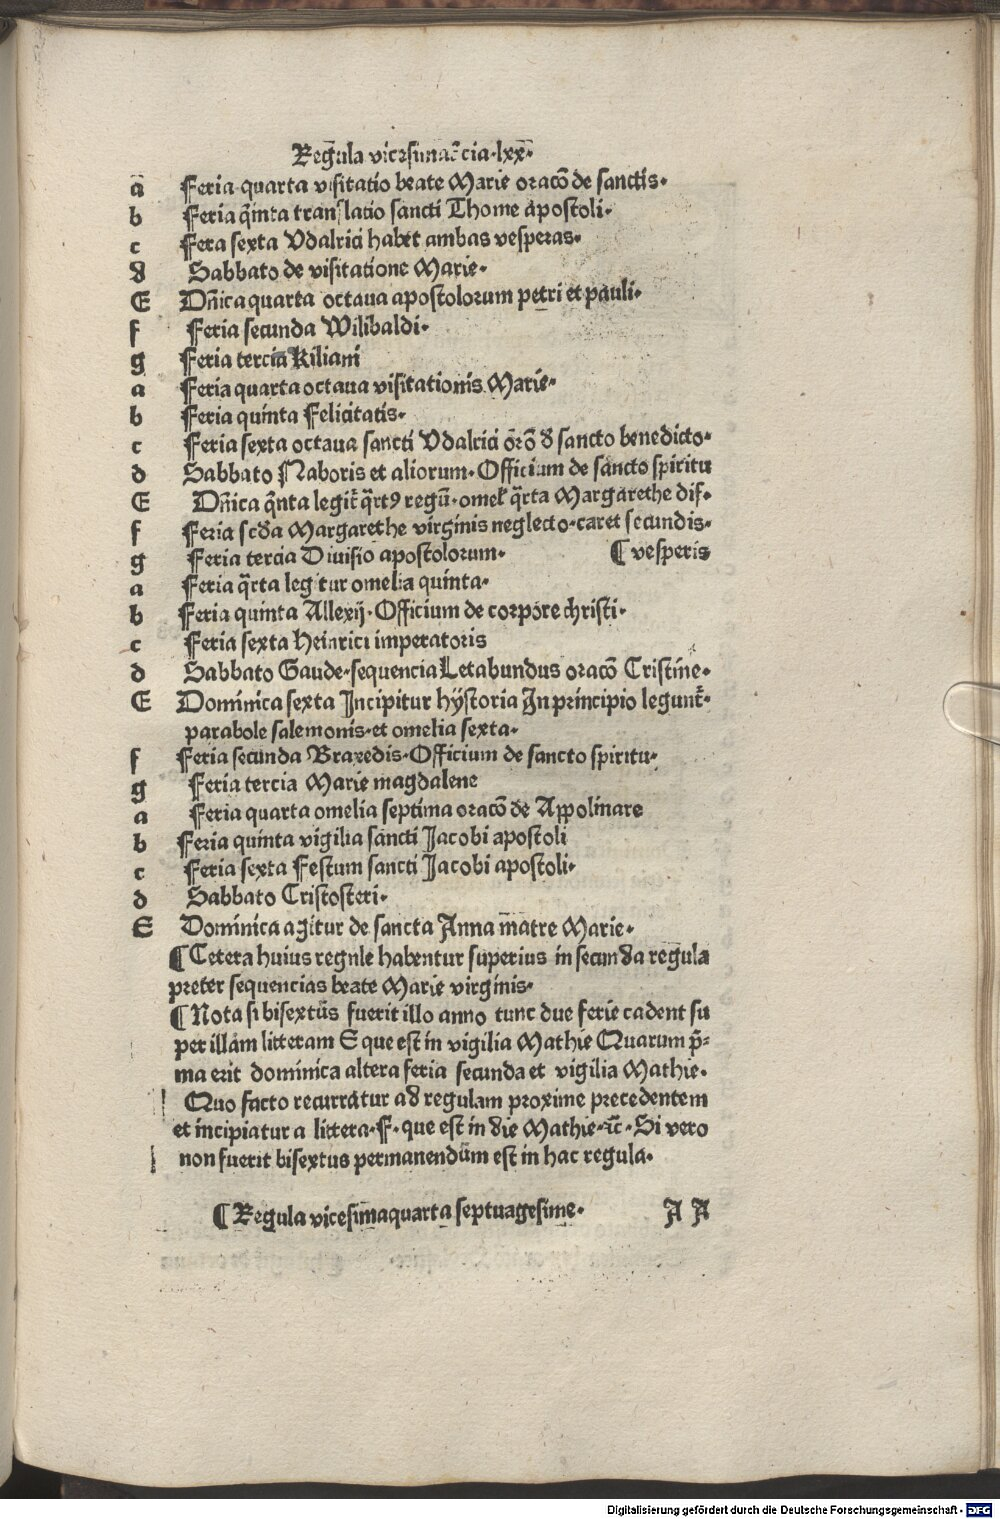 Regula vicesimatercia·lxx·
a Feria quarta visitatio beate Marie oracō de sanctis·
b Feria q̄inta translatio sancti Thome apostoli·
c Fera sexta Udalrici habet ambas vesperas·
d Sabbato de visitatione Marie·
E Dn̄ica quarta octaua apostolorum petri et pauli·
f Feria secunda Wilibaldi·
g Feria tercia Kiliani
a Feria quarta octaua visitationis Marie·
b Feria quinta Felicitatis·
c Feria sexta octaua sancti Udalrici ōrō d sancto benedicto·
d Sabbato Naboris et aliorum·Officium de sancto spiritu
E Dn̄ica q̄nta legit̄ q̄rtꝰ regū·omel̄ q̄rta Margarethe dif·
f Feria scd̄a Margarethe virginis neglecto·caret secundis·
g Feria tercia Diuisio apostolorum· ¶ vesperis
a Feria q̄rta legitur omelia quinta·
b Feria quinta Allexij·Officium de corpore christi·
c Feria sexta Heinrici imperatoris
d Sabbato Gaude·sequencia Letabundus oracō Cristine·
E Dominica sexta Incipitur hystoria In principio legunt̄·
parabole salemonis·et omelia sexta·
f Feria secunda Braxedis·Officium de sancto spiritu·
g Feria tercia Marie magdalene
a Feria quarta omelia septima oracō de Appolinare
b Feria quinta vigilia sancti Jacobi apostoli
c Feria sexta Festum sancti Jacobi apostoli·
d Sabbato Cristosteri·
E Dominica agitur de sancta Anna matre Marie·
¶ Cetera huius regule habentur superius in secunda regula
preter sequencias beate Marie virginis·
¶ Nota si bisextus fuerit illo anno tunc due ferie cadent su
per illam litteram E que est in vigilia Mathie Quarum p̄=
ma erit dominica altera feria secunda et vigilia Mathie·
Quo facto recurratur ad regulam proxime precedentem
et incipiatur a littera·F·que est in die Mathie·ꝛc̄·Si vero
non fuerit bisextus permanendum est in hac regula·
¶ Regula vicesimaquarta septuagesime· A A
Digitalisierung gefördert durch die Deutsche Forschungsgemeinschaft - DFG